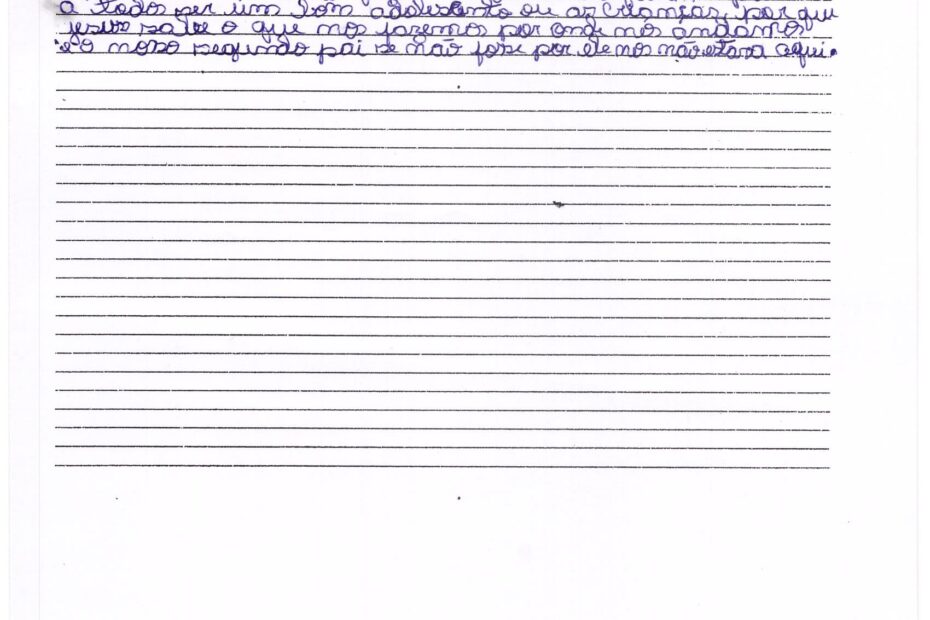 a todos ser um bom adolesento ou as crianças, por que
jesus sabe o que nos fazemos por onde nos andamos
e o noso segundo pai se não fose por ele nos não estara aqui.